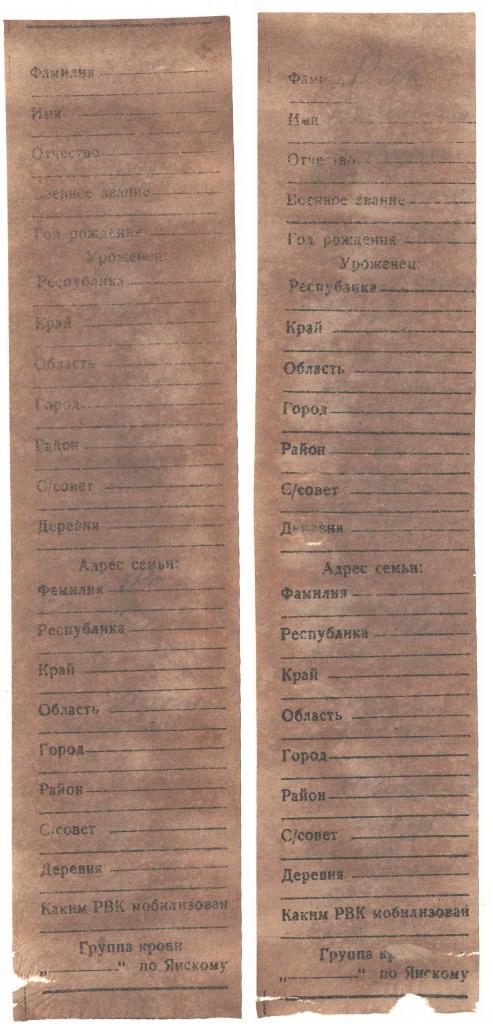 Фамилия
Имя
Отчество
Военное звание
Год рождение
Уроженец:
Республика
Край
Область
Город
Район
С/совет
Деревня
Адрес семьи:
Фамилия
Республика
Край
Область
Город
Район
С/совет
Деревня
Каким РВК мобилизован
Группа крови
„ “ по Янскому
Фам
Имя
Отчество
Военное звание
Год рождения
Уроженец:
Республика
Край
Область
Город
Район
С/совет
Деревня
Адрес семьи:
Фамилия
Республика
Край
Область
Город
Район
С/совет
Деревня
Каким РВК мобилизован
Группа кр
„ “ по Янскому